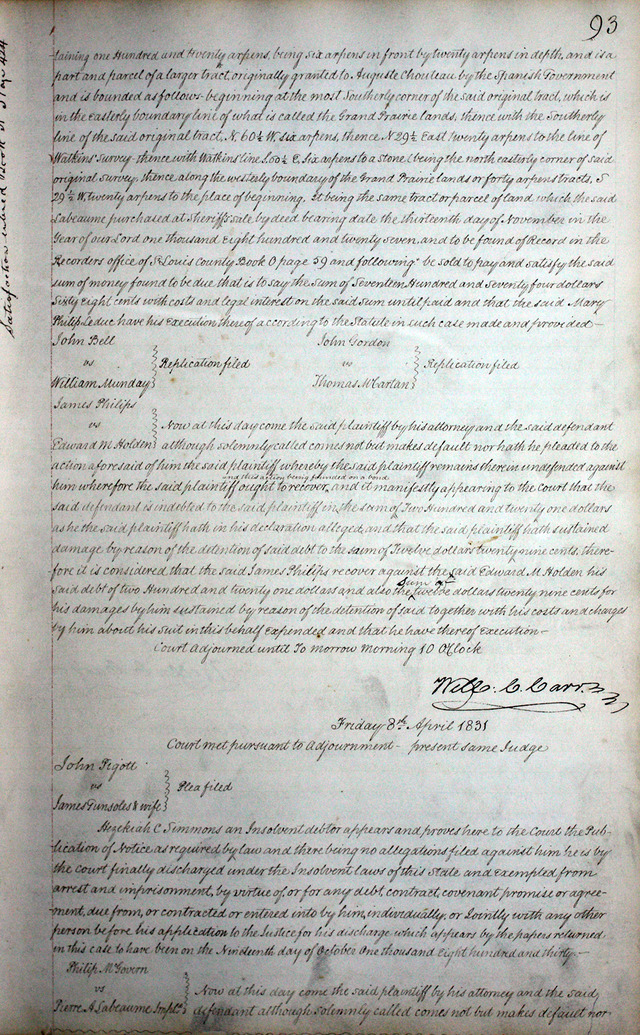 93
Satisfaction entered Book N. 5 Page 424
taining one Hundred and twenty arpens, being six arpens in front by twenty arpens in depth, and is a
part and parcel of a larger tract, originally granted to Auguste Chouteau by the Spanish Government
and is bounded as follows - beginning at the most Southerly corner of the said original tract, which is
in the easterly boundary line of what is called the Grand Prairie lands, thence with the Southerly
line of the said original tract, N. 60½ W. six arpens, thence N 29½ East twenty arpens to the line of
Watkins' Survey - thence with Watkins line S 60½ E. Six arpens to a stone (being the north easterly corner of said
original survey, thence along the westerly boundary of the Grand Prairie lands or forty arpens tracts, S
29½ W. twenty arpens to the place of beginning. It being the same tract or parcel of land which the said
Labeaume purchased at Sheriff sale by deed bearing date the thirteenth day of November in the
Year of our Lord one thousand eight hundred and twenty seven, and to be found of Record in the
Recorders office of St Louis County Book O page 59 and following, be sold to pay and satisfy the said
sum of money found to be due, that is to say the Sum of Seventeen Hundred and Seventy four dollars
Sixty eight cents with costs and legal interest on the said Sum until paid and that the said Mary
Philipleduc have his Execution thereof according to the Statute in such case made and provided -
John Bell
vs
William Munday
Replication filed
John Gordon
vs
Thomas McCarlan
Replication filed
James Philips
vs
Edward M. Holden
Now at this day come the said plaintiff by his attorney and the said defendant
although solemnly called comes not but makes default nor hath he pleaded to the
action aforesaid of him the said plaintiff whereby the said plaintiff remains therein undefended against
and this action being founded on a bond
him wherefore the said plaintiff ought to recover, and it manifestly appearing to the Court that the
said defendant is indebted to the said plaintiff in the sum of Two Hundred and twenty one dollars
as he the said plaintiff hath in his declaration alleged, and that the said plaintiff hath sustained
damage by reason of the detention of said debt to the sum of Twelve dollars twenty nine cents, there-
fore it is considered that the said James Philips recover against the said Edward M. Holden his
Sum of
said debt of two Hundred and twenty one dollars and also the twelve dollars twenty nine cents for
his damages by him sustained by reason of the detention of said together with his costs and charges
by him about his Suit in this behalf Expended and that he have thereof Execution -
Court Adjourned until To morrow Morning 10 O'Clock
Will. C. Carr
Friday 8th April 1831
Court met pursuant to Adjournment - present same Judge
John Pigott
vs
James Dunsoles & wife
Plea filed
Hezekiah C Simmons an Insolvent debtor appears and proves here to the Court the Pub-
lication of Notice as required by law and there being no allegations filed against him he is by
the Court finally discharged under the Insolvent laws of this State and Exempted from
arrest and imprisonment, by virtue of, or for any debt, contract, covenant promise or agree-
ment, due from, or contracted or entered into by him, individually, or Jointly with any other
person before his application to the Justice for his discharge which appears by the papers returned
in this case to have been on the Nineteenth day of October One thousand Eight hundred and thirty. -
Philip McGovern
vs
Pierre A Labeaume Impl'd
Now at this day come the said plaintiff by his attorney and the said
defendant although solemnly called comes not but makes default nor